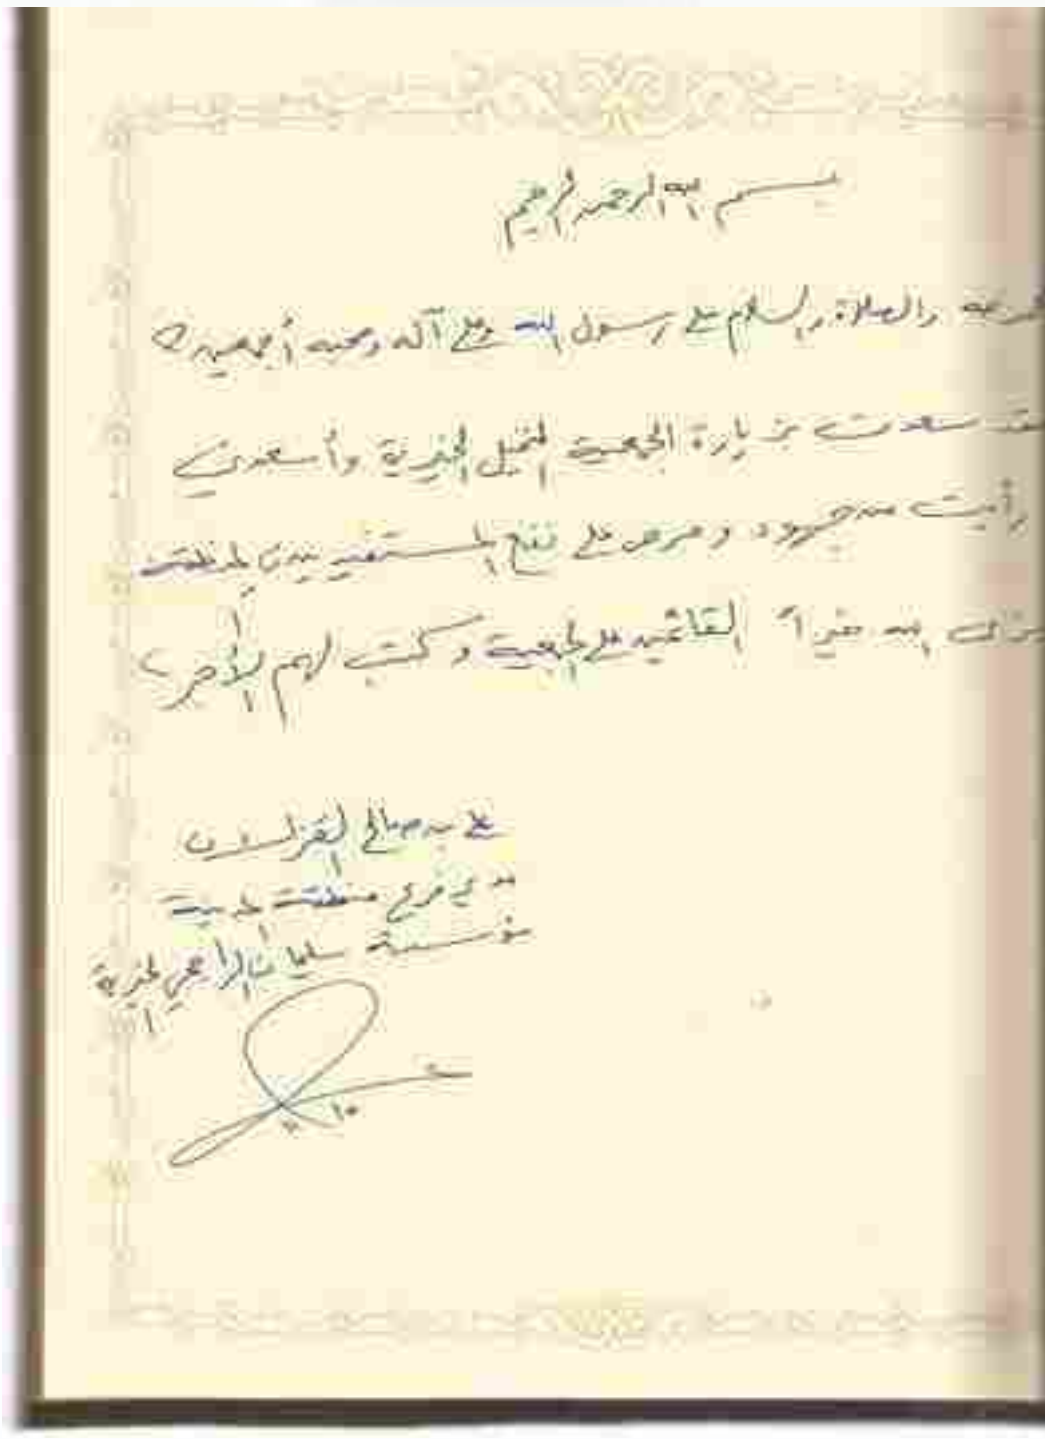 بسم الله الرحمن الرحيم
والصلاة والسلام على رسول الله وعلى آله وصحبه أجمعين
سعدت بزيارة الجمعية الخيرية وأسعدني
رأيت من جهود وحرص على نفع المستفيدين بالمنطقة
الله خيراً القائمين على الجمعية وكتب لهم الأجر
علي بن صالح
مدير فرع منطقة المدينة
مؤسسة سليمان الراجحي الخيرية